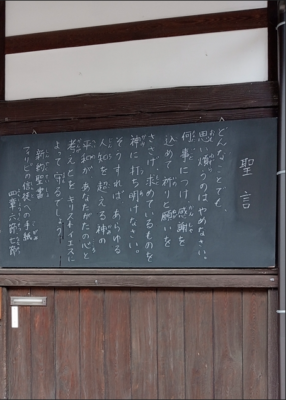 聖言
どんなことでも、
思い煩うのはやめなさい。
何事につけ感謝を
込めて祈りと願いを
ささげ、求めているものを
神に打ち明けなさい。
そうすれば、あらゆる
人知を超える神の
平和が、あなたがたの心と
考えとをキリスト・イエスに
よって守るでしょう。
新約聖書
フィリピの信徒への手紙
四章六節七節